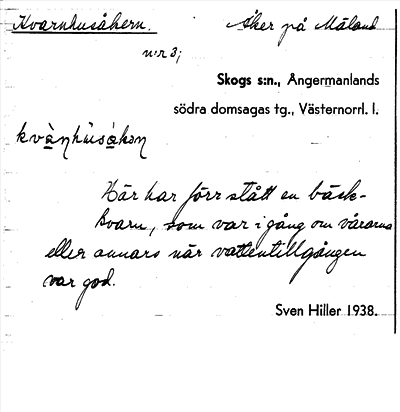 Kvarnhusåkern. Åker på Måland
n:r 3;
Skogs s:n., Ångermanlands
södra domsagas tg., Västernorrl. l.
Här har förr stått en bäck-
kvarn, som var i gång om vårarna
eller annars när vattentillgången
var god.
Sven Hiller 1938.